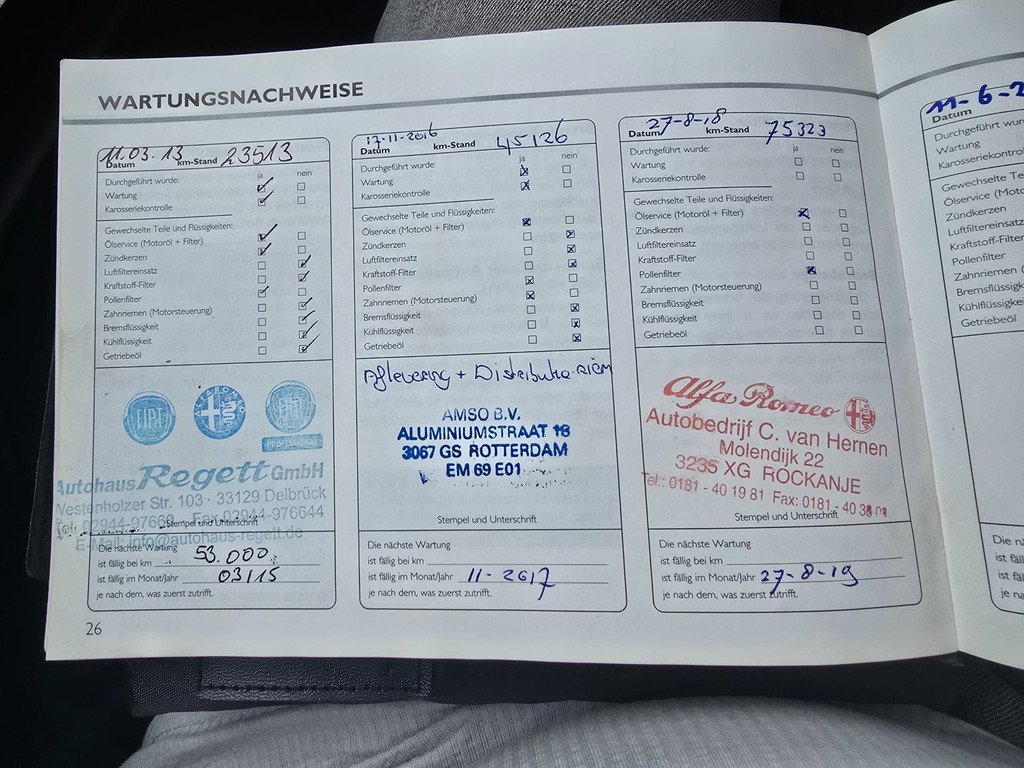 WARTUNGSNACHWEISE
11.03.13 23513
Datum km-Stand
Durchgeführt wurde: ja nein
Wartung
Karosseriekontrolle
Gewechselte Teile und Flüssigkeiten:
Ölservice (Motoröl + Filter)
Zündkerzen
Luftfiltereinsatz
Kraftstoff-Filter
Pollenfilter
Zahnriemen (Motorsteuerung)
Bremsflüssigkeit
Kühlflüssigkeit
Getriebeöl
FIAT
PROFESSIONAL
Autohaus Regett GmbH
Westenholzer Str. 103 · 33129 Delbrück
Tel. 02944-97660 Fax 02944-976644
Stempel und Unterschrift
E-Mail: info@autohaus-regett.de
Die nächste Wartung
ist fällig bei km 53.000
ist fällig im Monat/Jahr 03/15
je nach dem, was zuerst zutrifft.
26
17-11-2016 45126
Datum km-Stand
Durchgeführt wurde: ja nein
Wartung
Karosseriekontrolle
Gewechselte Teile und Flüssigkeiten:
Ölservice (Motoröl + Filter)
Zündkerzen
Luftfiltereinsatz
Kraftstoff-Filter
Pollenfilter
Zahnriemen (Motorsteuerung)
Bremsflüssigkeit
Kühlflüssigkeit
Getriebeöl
Aflevering + Distributie riem
AMSO B.V.
ALUMINIUMSTRAAT 18
3067 GS ROTTERDAM
EM 69 E01
Stempel und Unterschrift
Die nächste Wartung
ist fällig bei km
ist fällig im Monat/Jahr 11-2017
je nach dem, was zuerst zutrifft.
27-8-18 75323
Datum km-Stand
Durchgeführt wurde: ja nein
Wartung
Karosseriekontrolle
Gewechselte Teile und Flüssigkeiten:
Ölservice (Motoröl + Filter)
Zündkerzen
Luftfiltereinsatz
Kraftstoff-Filter
Pollenfilter
Zahnriemen (Motorsteuerung)
Bremsflüssigkeit
Kühlflüssigkeit
Getriebeöl
Alfa Romeo
Autobedrijf C. van Hernen
Molendijk 22
3235 XG ROCKANJE
Tel.: 0181 - 40 19 81 Fax: 0181 - 40
Stempel und Unterschrift
Die nächste Wartung
ist fällig bei km
ist fällig im Monat/Jahr 27-8-19
je nach dem, was zuerst zutrifft.
11-6-2
Datum
Durchgeführt wur
Wartung
Karosseriekontrol
Gewechselte Teile
Ölservice (Motor
Zündkerzen
Luftfiltereinsatz
Kraftstoff-Filter
Pollenfilter
Zahnriemen (Mot
Bremsflüssigkeit
Kühlflüssigkeit
Getriebeöl
Die n
ist fälli
ist fällig
je na